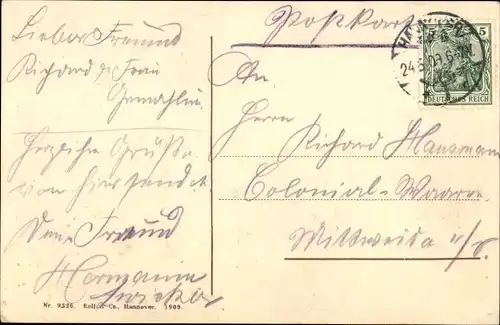 Postkarte
Lieber Freund
Richard & Frau
Gemahlin
Herzliche Grüße
von hier sendet
Dein Freund
Hermann
An
Herrn Richard Hausmann
Colonial-Waaren
Mittweida i/S.
5
24.6.09.
DEUTSCHES REICH
Nr. 9326. Rolf & Co., Hannover. 1909.